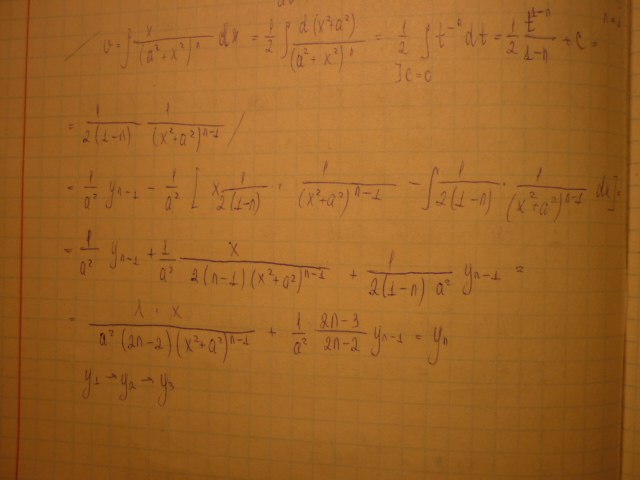 / v = ∫ x/(a²+x²)ⁿ dx = 1/2 ∫ d(x²+a²)/(a²+x²)ⁿ = 1/2 ∫ t⁻ⁿ dt = 1/2 t¹⁻ⁿ/(1-n) + C =
] C = 0
= 1/(2(1-n)) 1/(x²+a²)ⁿ⁻¹ /
= 1/a² yₙ₋₁ - 1/a² [ x 1/(2(1-n)) · 1/(x²+a²)ⁿ⁻¹ - ∫ 1/(2(1-n)) · 1/(x²+a²)ⁿ⁻¹ dx ] =
= 1/a² yₙ₋₁ + 1/a² x/(2(n-1)(x²+a²)ⁿ⁻¹) + 1/(2(1-n) a²) yₙ₋₁ =
= 1 · x/(a²(2n-2)(x²+a²)ⁿ⁻¹) + 1/a² (2n-3)/(2n-2) yₙ₋₁ = yₙ
y₁ → y₂ → y₃